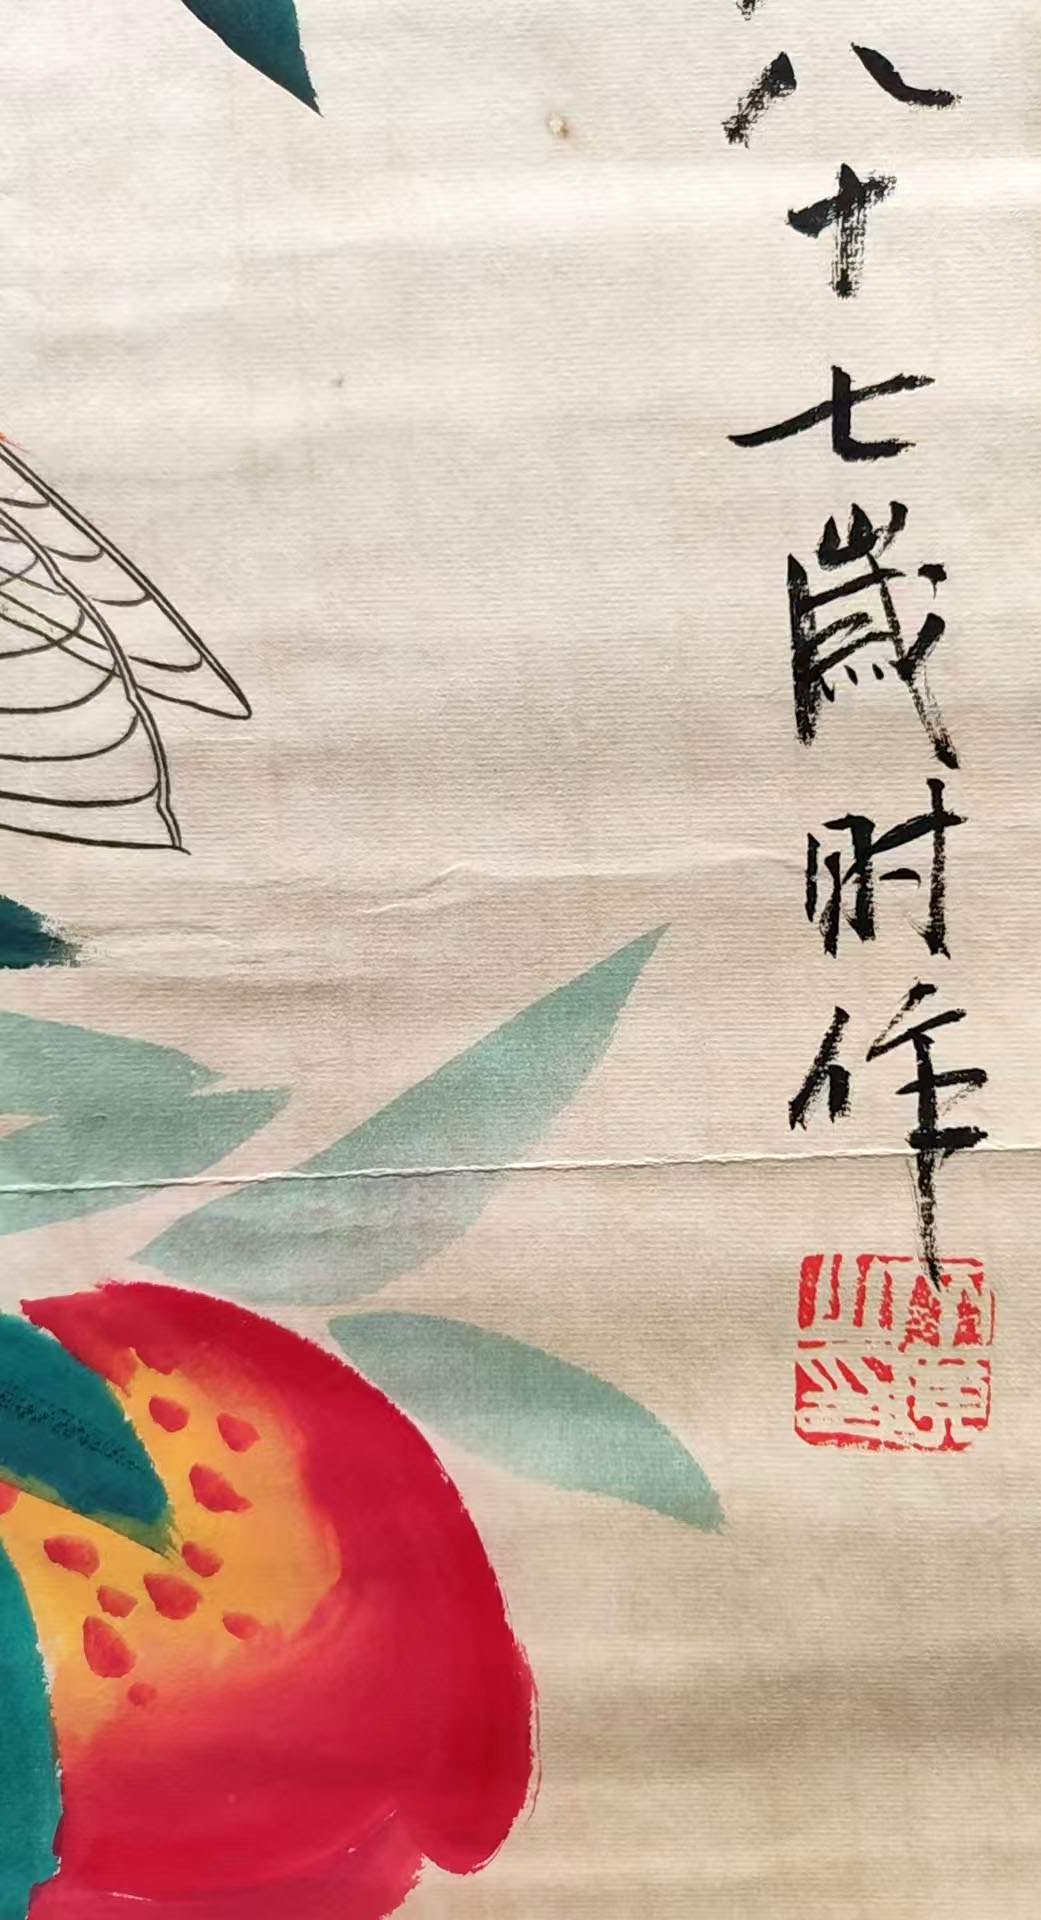 八十七歲时作